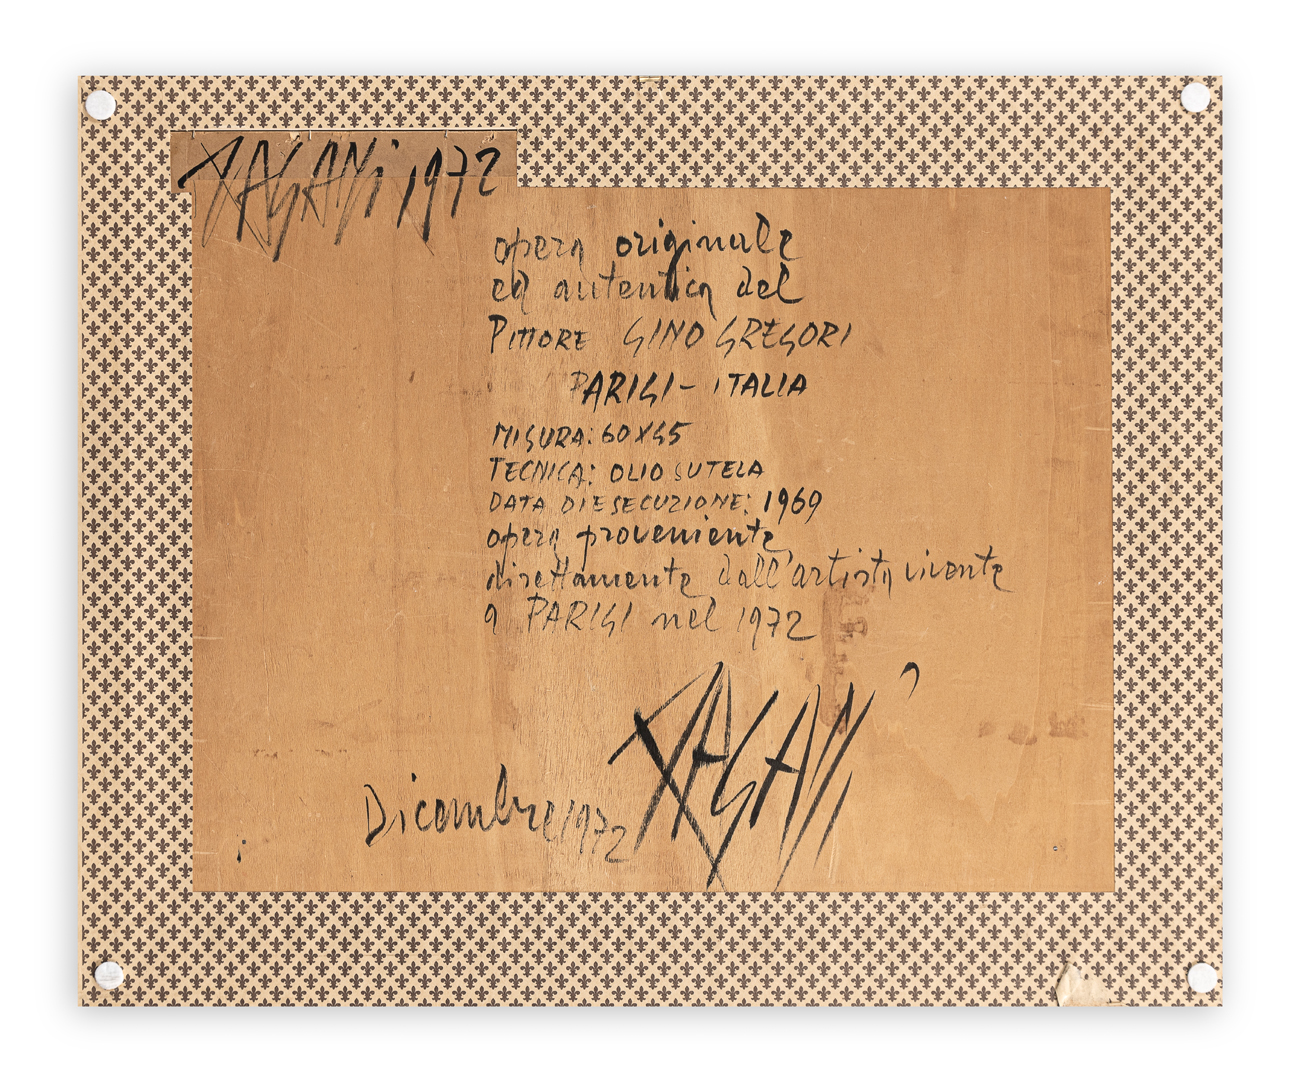 PAGANI 1972
opera originale
ed autentica del
PITTORE GINO GREGORI
PARIGI - ITALIA
MISURA: 60X45
TECNICA: OLIO SUTELA
DATA DI ESECUZIONE: 1969
opera proveniente
direttamente dall'artista vivente
a PARIGI nel 1972
PAGANI
Dicembre 1972